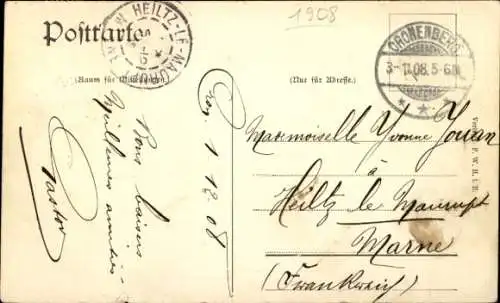 1908
Postkarte
HEILTZ-LE-MAURUPT
CRONENBERG
3-11.08.5-6N
(Raum für Mitteilungen)
(Nur für Adresse.)
Bons baisers
Meilleures amitiés
Gaston
1 12 08
Mademoiselle Yvonne
à
Heiltz le Maurupt
Marne
(Frankreich)